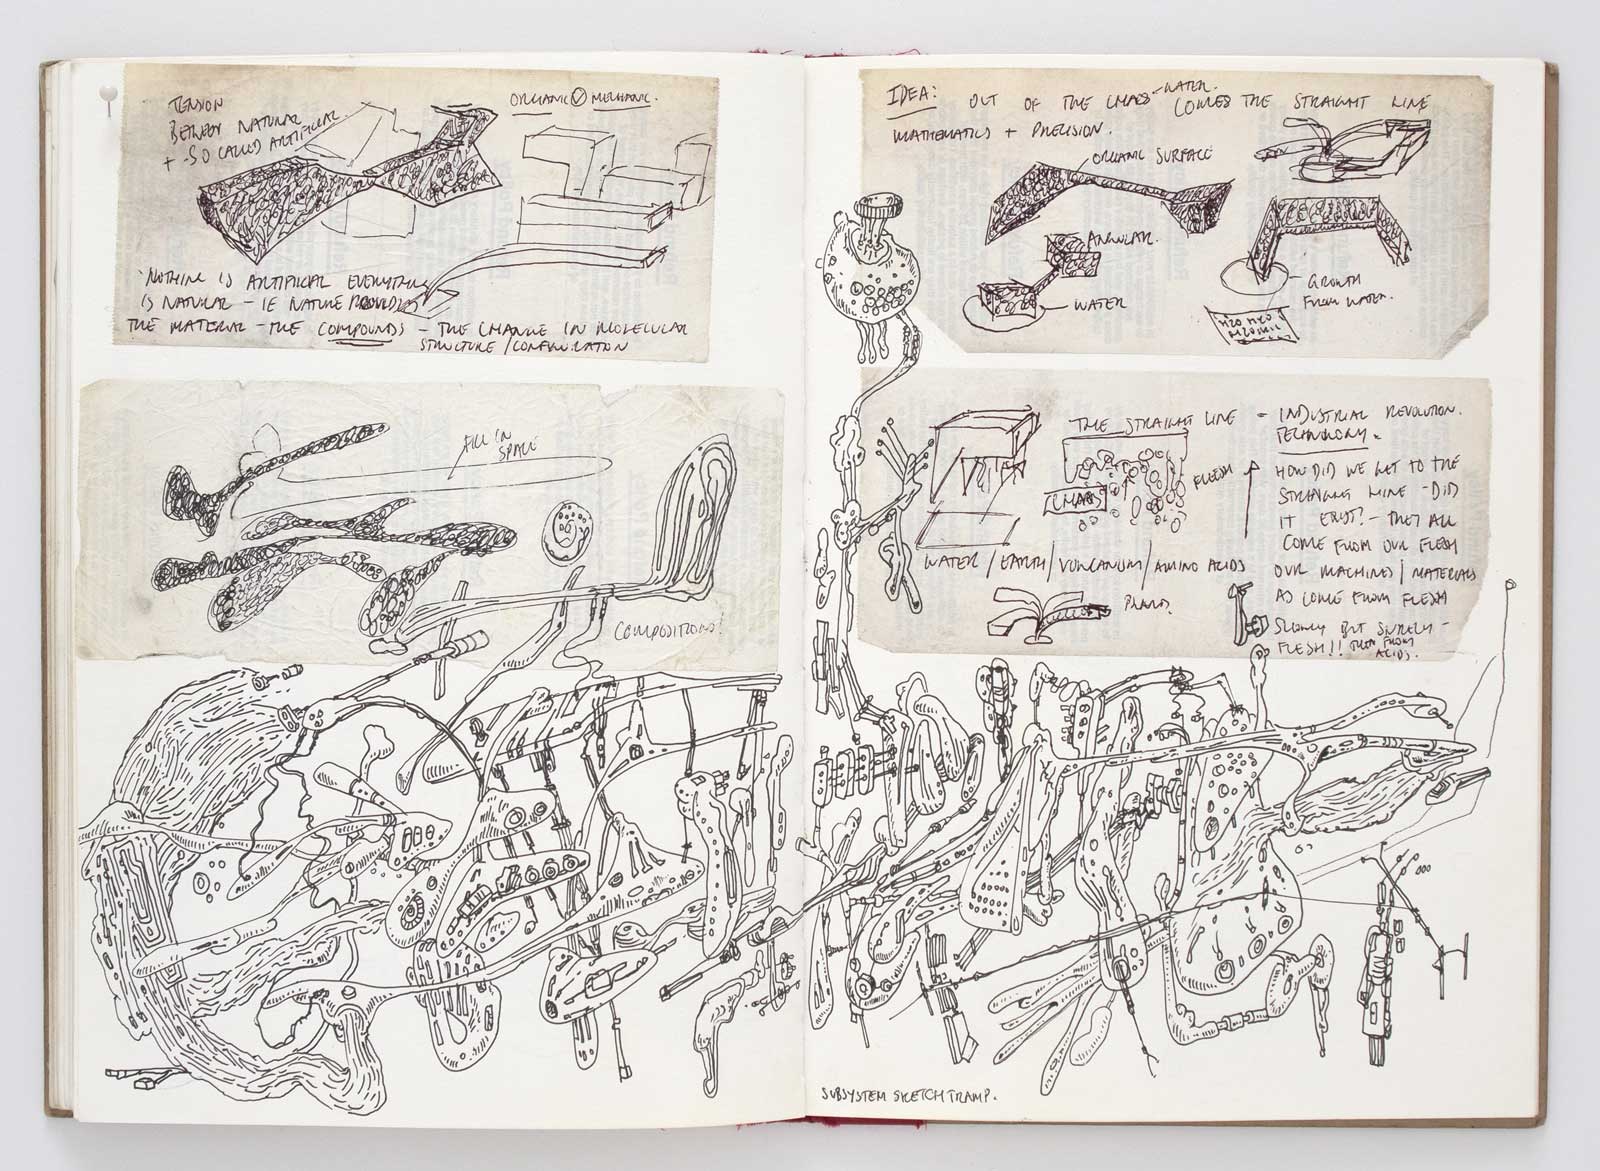 TENSION
BETWEEN NATURAL
+ SO CALLED ARTIFICIAL.
ORGANIC MECHANIC.
NOTHING IS ARTIFICIAL EVERYTHING
IS NATURAL - IE NATURE PROVIDES
THE MATERIAL - THE COMPOUNDS - THE CHANGE IN MOLECULAR
STRUCTURE / CONFIGURATION
FILL IN
SPACE
COMPOSITIONS!
IDEA: OUT OF THE CHAOS - WATER. COMES THE STRAIGHT LINE
MATHEMATICS + PRECISION.
ORGANIC SURFACE
ANGULAR.
WATER
GROWTH
FROM WATER.
H2O H2O
THE STRAIGHT LINE = INDUSTRIAL REVOLUTION.
TECHNOLOGY.
CHAOS
FLESH
HOW DID WE GET TO THE
STRAIGHT LINE - DID
IT EXIST? - THEY ALL
COME FROM OUR FLESH
OUR MACHINES / MATERIALS
AS COME FROM FLESH
SLOWLY BUT SURELY -
FLESH!! THEN FROM
ACIDS.
WATER / EARTH / VOLCANISM / AMINO ACIDS
PLANT.
SUBSYSTEM SKETCH TRAMP.